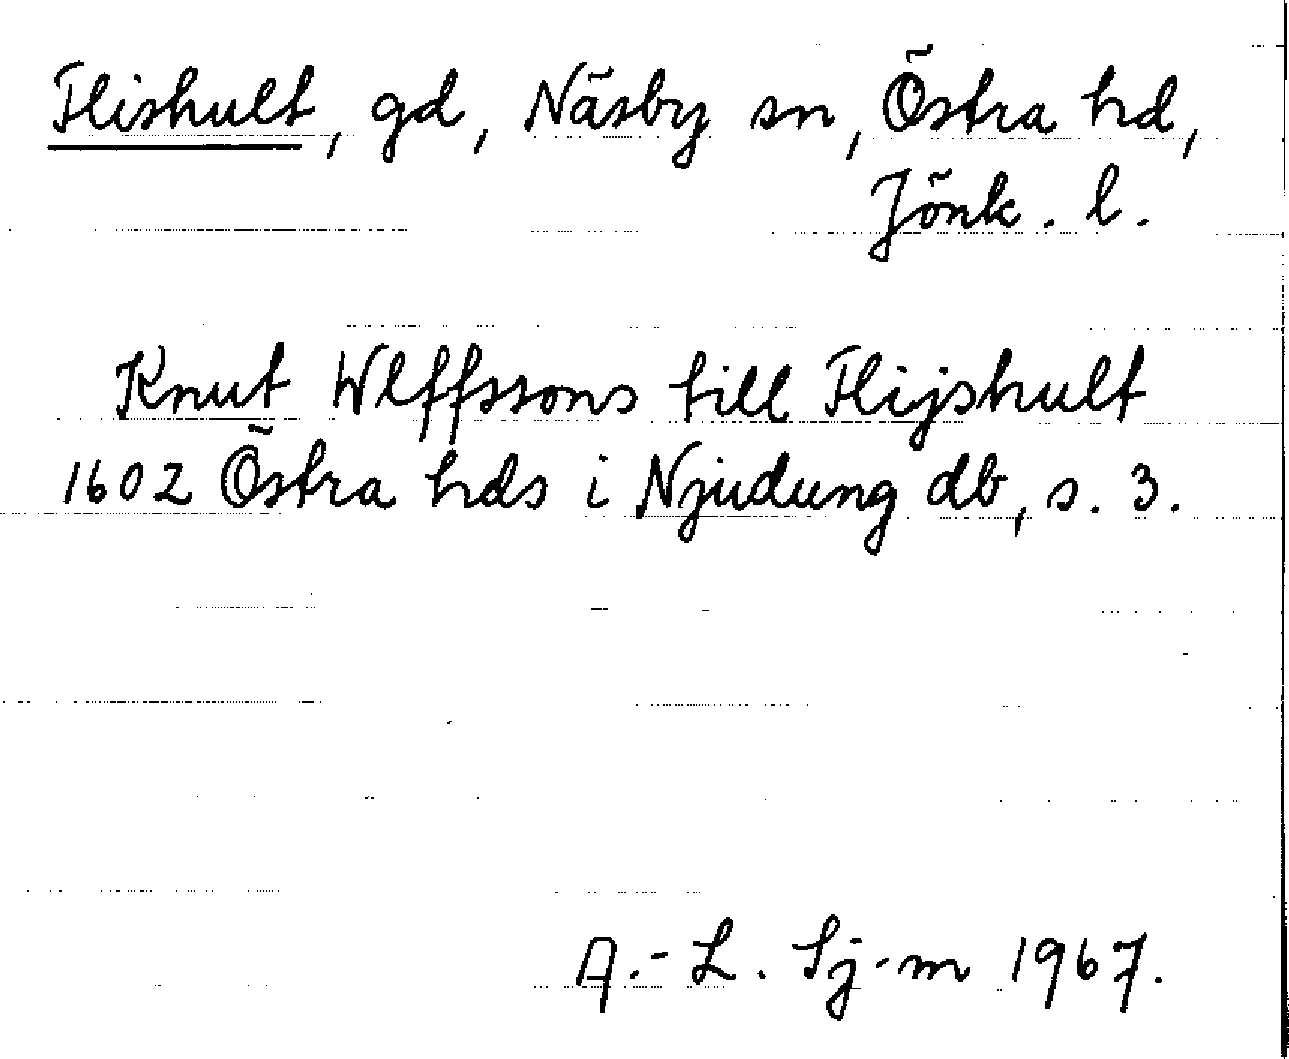 Flishult, gd, Näsby sn, Östra hd,
Jönk. l.
Knut Wlffssons till Flijshult
1602 Östra hds i Njudung db, s. 3.
A.-L. Sj-m 1967.